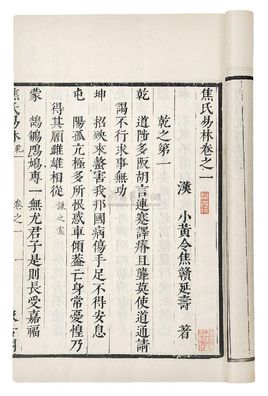 焦氏易林卷之一
漢 小黃令焦贛延壽 著
乾之第一
乾 道陟多阪胡言連蹇譯瘖且聾莫使道通請
謁不行求事無功
坤 招殃來螫害我邦國病傷手足不得安息
屯 陽孤亢極多所恨惑車傾蓋亡身常憂惶乃
得其願雌雄相從 謙之蒙
蒙 鵠鵴鳲鳩專一無尤君子是則長受嘉福
焦氏易林 卷之一 一